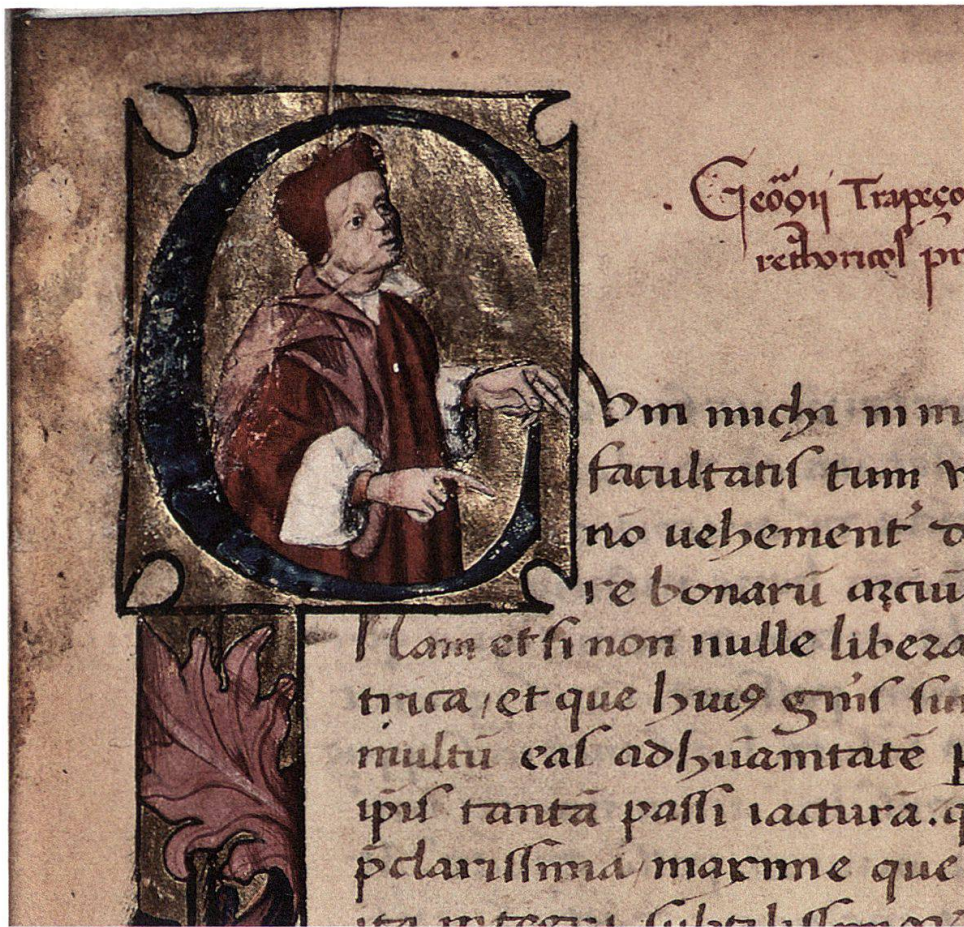 . Georgij Trapeço
rethoricoꝝ pr
Cum michi in m
facultatis tum v
nō uehement̾ d
re bonarū arciū
Nam et si non nulle libera
trica, et que huiꝰ gn̄is sin
multū eas ad hūanitatē p
ip̄is tantā passi iacturā. q
p̄clarissima, maxime que
ita integri subtiliss